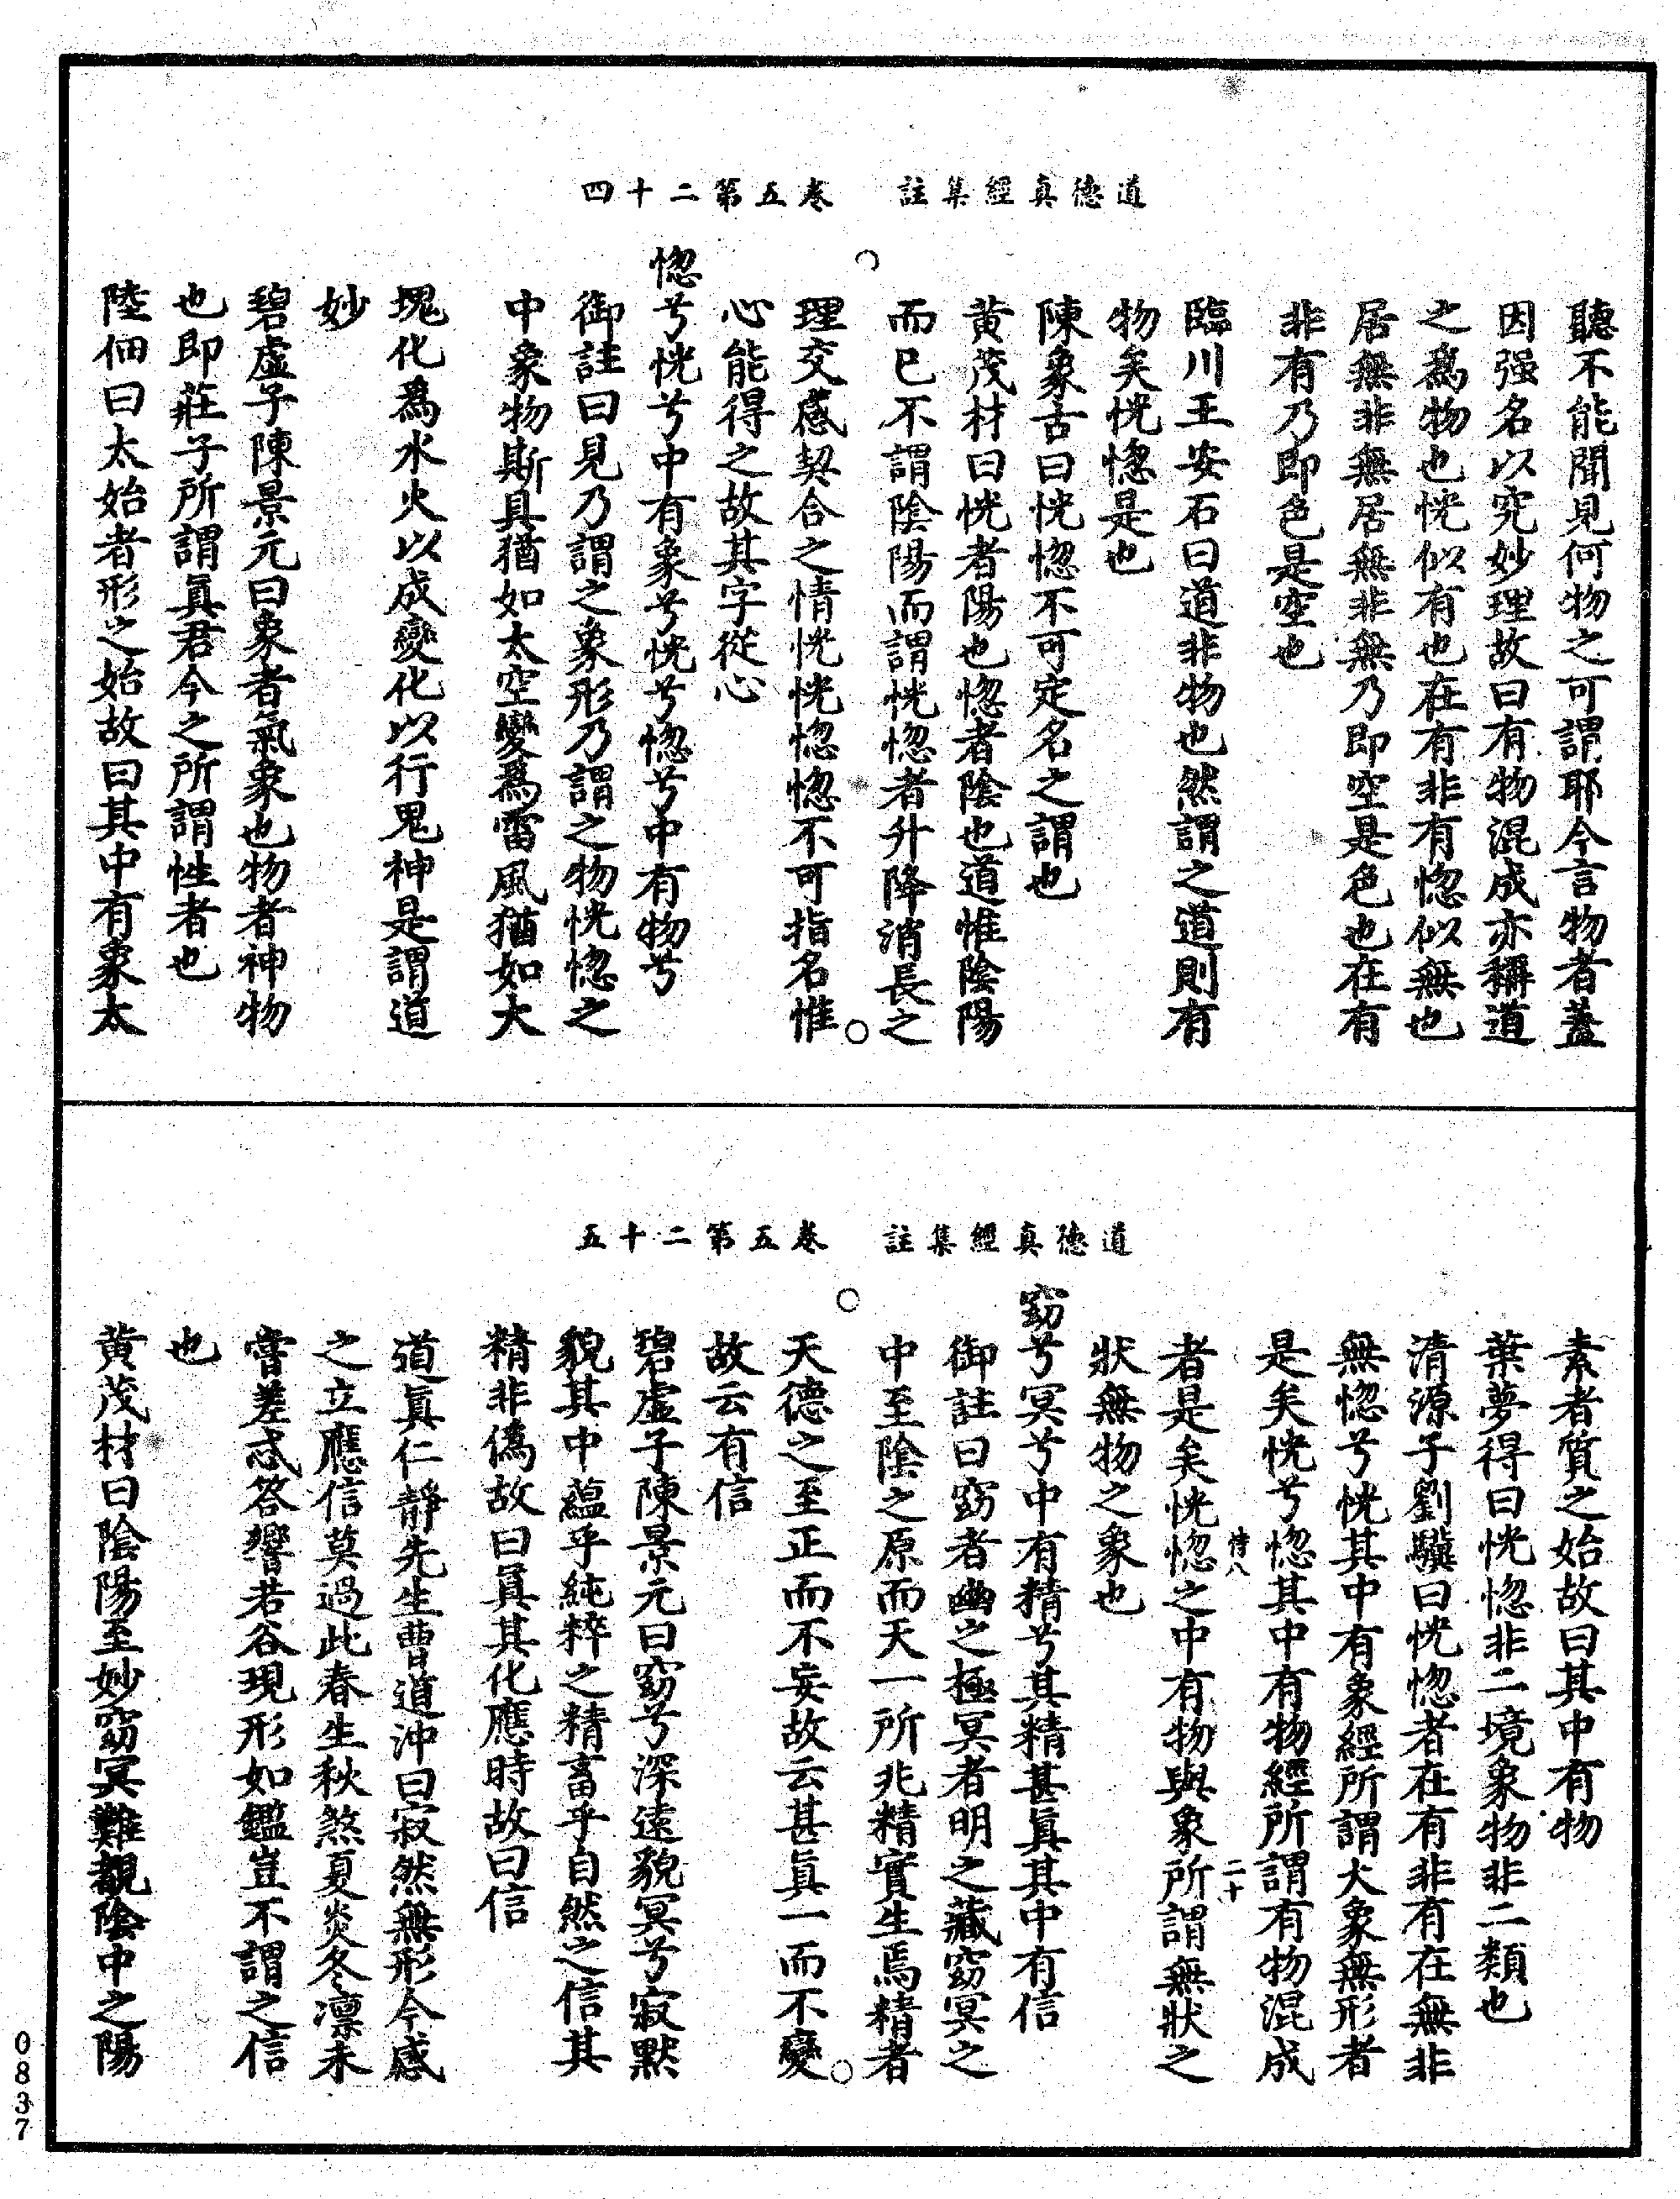 道德真經集註　卷五第二十四
聽不能聞見何物之可謂耶今言物者蓋
因强名以究妙理故曰有物混成亦稱道
之爲物也恍似有也在有非有惚似無也
居無非無居無非無乃即空是色也在有
非有乃即色是空也
臨川王安石曰道非物也然謂之道則有
物矣恍惚是也
陳象古曰恍惚不可定名之謂也
黃茂材曰恍者陽也惚者陰也道惟陰陽
而已不謂陰陽而謂恍惚者升降消長之
理交感契合之情恍恍惚惚不可指名惟
心能得之故其字從心
惚兮恍兮中有象兮恍兮惚兮中有物兮
御註曰見乃謂之象形乃謂之物恍惚之
中象物斯具猶如太空變爲雷風猶如大
塊化爲水火以成變化以行鬼神是謂道
妙
碧虛子陳景元曰象者氣象也物者神物
也即莊子所謂眞君今之所謂性者也
陸佃曰太始者形之始故曰其中有象太
道德真經集註　卷五第二十五
素者質之始故曰其中有物
葉夢得曰恍惚非二境象物非二類也
清源子劉驥曰恍惚者在有非有在無非
無惚兮恍其中有象經所謂大象無形者
是矣恍兮惚其中有物經所謂有物混成
者是矣恍惚之中有物與象所謂無狀之
狀無物之象也
窈兮冥兮中有精兮其精甚眞其中有信
御註曰窈者幽之極冥者明之藏窈冥之
中至陰之原而天一所兆精實生焉精者
天德之至正而不妄故云甚眞一而不變
故云有信
碧虛子陳景元曰窈兮深遠貌冥兮寂默
貌其中蘊乎純粹之精畜乎自然之信其
精非僞故曰眞其化應時故曰信
道眞仁靜先生曹道沖曰寂然無形今感
之立應信莫過此春生秋煞夏炎冬凛未
嘗差忒答響若谷現形如鑑豈不謂之信
也
黃茂材曰陰陽至妙窈冥難覩陰中之陽
二十
0837